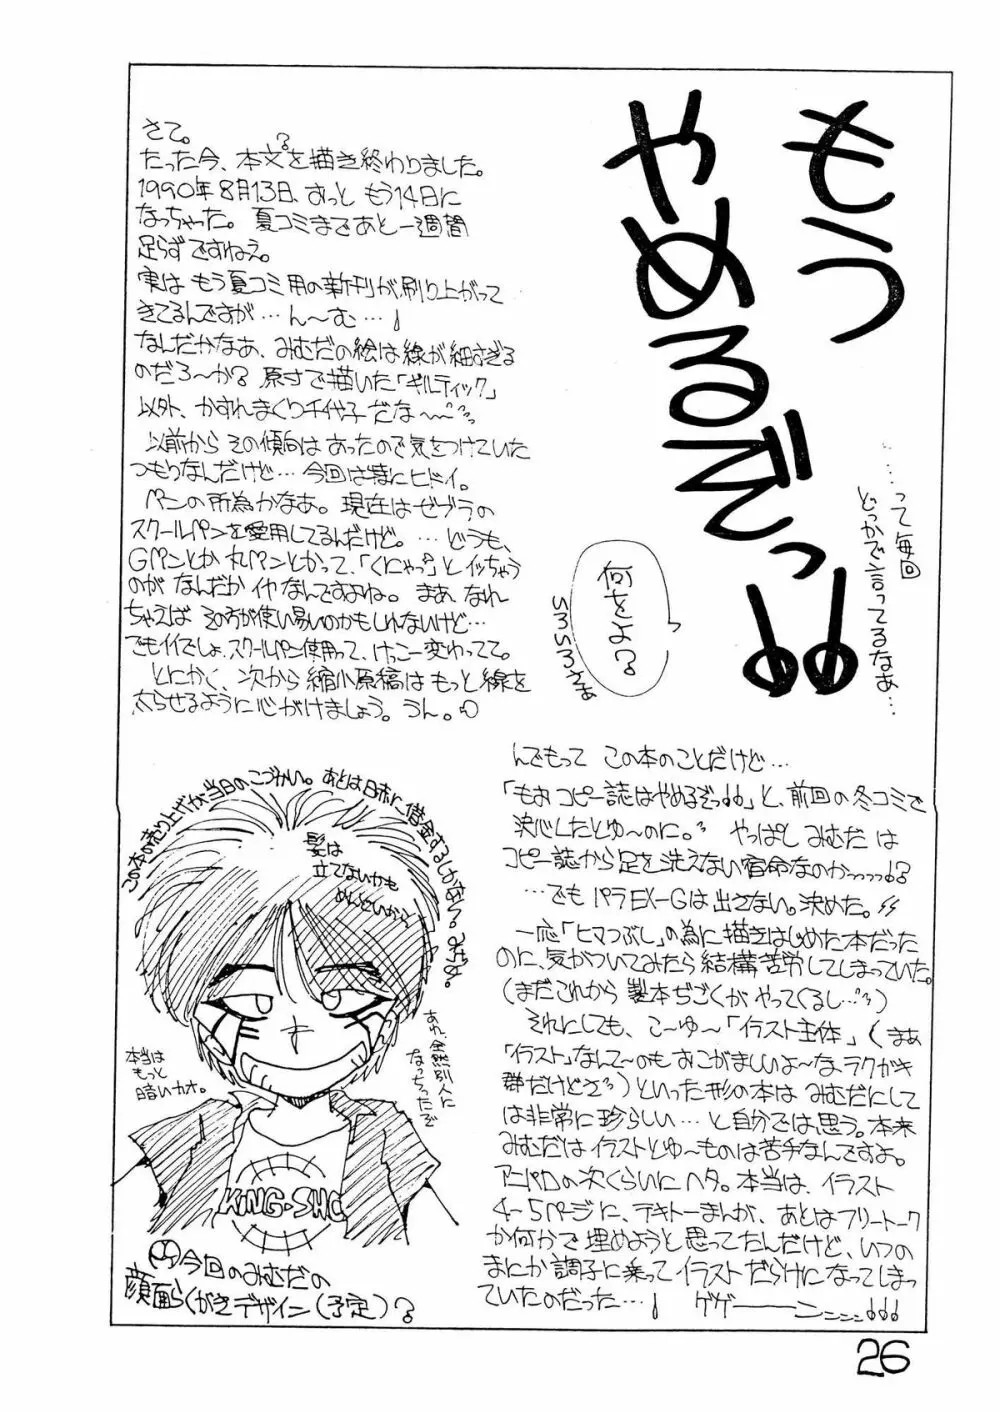 もう
やめるぞっ!!
……って毎回
どっかで言ってるなあ…
何をよ?
いろいろさあ
さて。
たった今、本文?を描き終わりました。
1990年8月13日、おっと もう14日に
なっちゃった。夏コミまであと一週間
足らずですねえ。
実は もう夏コミ用の新刊が刷り上がって
きてるんですが…ん〜む…!
なんだかなあ、みむだの絵は線が細すぎる
のだろ〜か?原寸で描いた「ギルティック」
以外、かすれまくり千代子だな〜
以前からその傾向はあったので気をつけていた
つもりなんだけど…今回は特にヒドイ。
ペンの所為かなあ。現在はゼブラの
スクールペンを愛用してるんだけど。…どうも、
Gペンとか丸ペンとかって、「くにゃっ」とイッちゃう
のが なんだか イヤなんですよね。まあ なれ
ちゃえば その方が使い易いのかもしれないけど…
でもイイでしょ、スクールペン使用って、けっこー変わってて。
とにかく、次から縮小原稿はもっと線を
太らせるように心がけましょう。うん。
んでもって この本のことだけど…
「もおコピー誌はやめるぞっ!!」と、前回の冬コミで
決心したとゆ〜のに。やっぱし みむだ は
コピー誌から足を洗えない宿命なのかっっっっ!?
…でも パラEX-Gは出さない。決めた。
一応「ヒマつぶし」の為に描きはじめた本だった
のに、気がついてみたら結構苦労してしまっていた。
(まだこれから製本ぢごくがやってくるし…)
それにしても、こ〜ゆ〜「イラスト主体」(まぁ
「イラスト」なんて〜のもおこがましいよ〜な、ラクガキ
群だけどさ)といった形の本は みむだにして
は非常に珍らしい…と自分では思う。本来
みむだはイラストとゆ〜ものは苦手なんですよ。
アニパロの次くらいにヘタ。本当は、イラスト
4〜5ページに、テキトーまんが、あとはフリートーク
か何かで埋めようと思ってたんだけど、いつの
まにか調子に乗ってイラストだらけになってしまっ
ていたのだった…! ゲゲーーーンンンン!!!
この本の売り上げが当日のこづかい。あとは日赤に借金するしかない。みむだ。
髪は
立てないかも
めんどいから
本当は
もっと
暗いカオ。
あれ、全然別人に
なっちったぞ
KING・SHO
今回のみむだの
顔面らくがきデザイン(予定)?
26